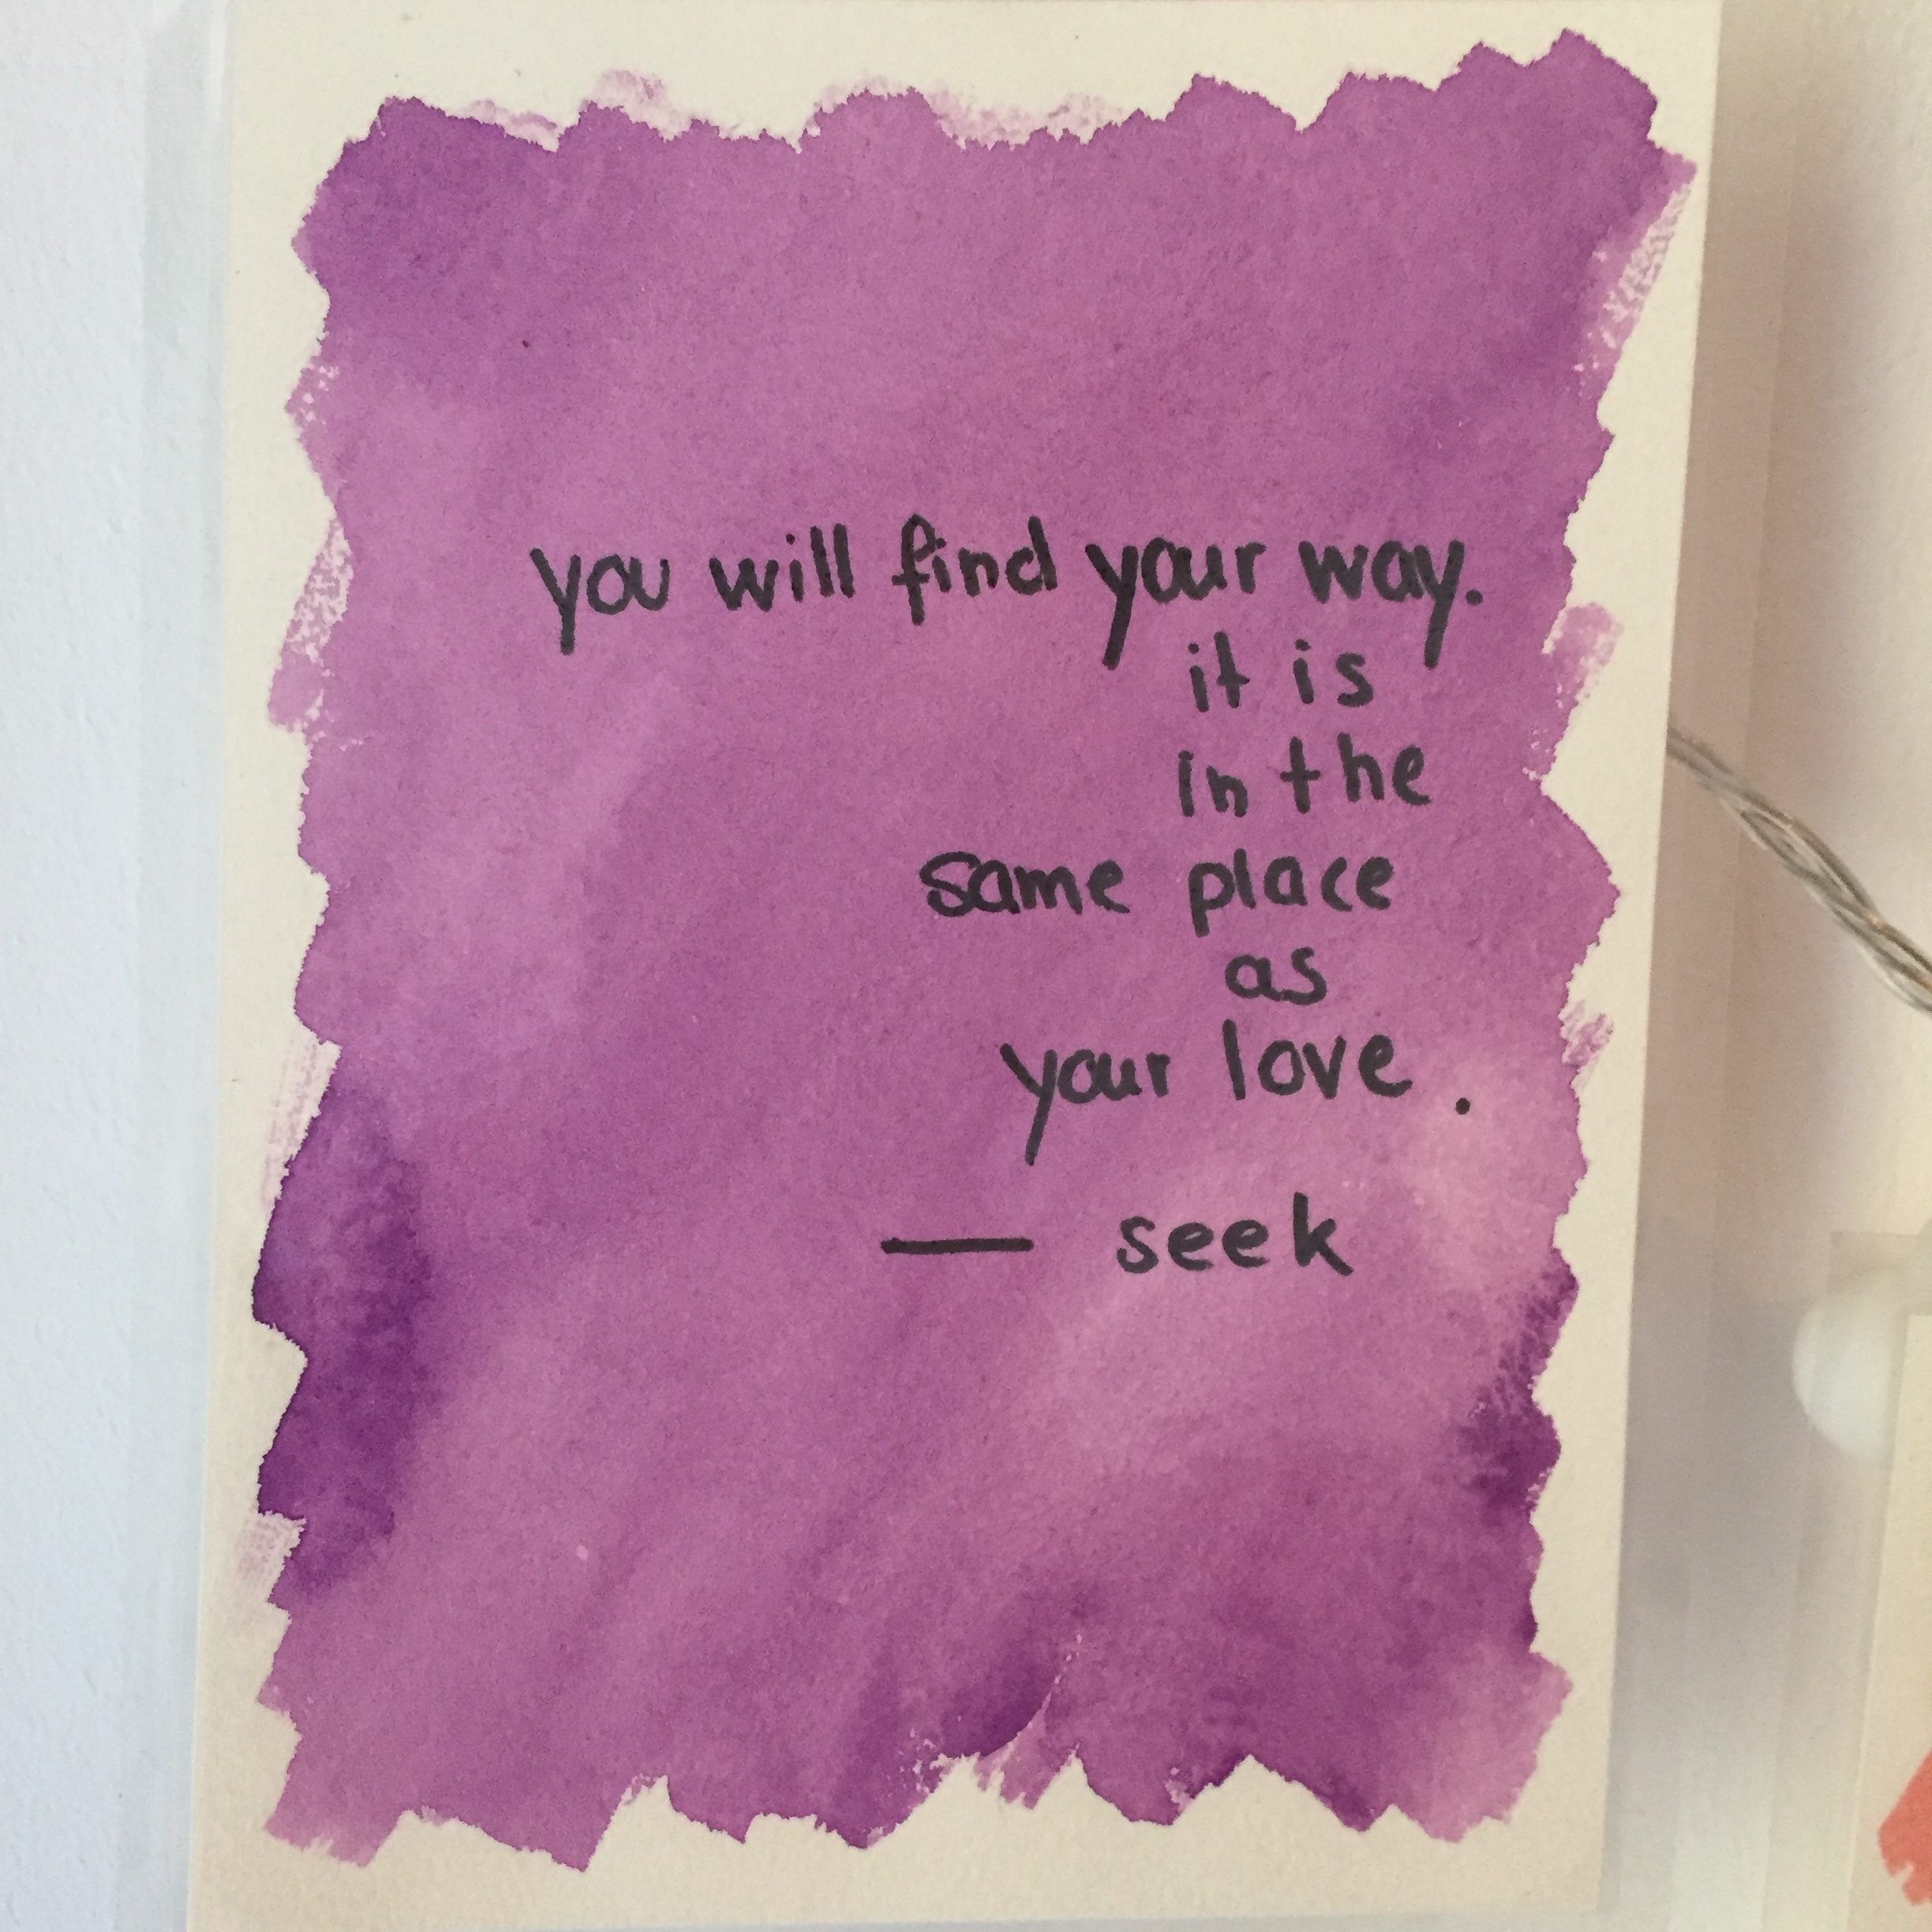 you will find your way.
it is
in the
same place
as
your love.
— seek